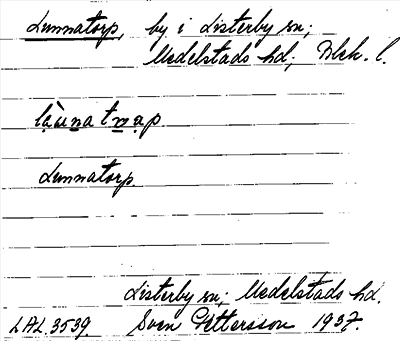 Lunnatorp, by i Listerby sn;
Medelstads hd; Blek. l.
Lunnatorp.
Listerby sn; Medelstads hd.
LAL.3539. Sven Pettersson 1937.